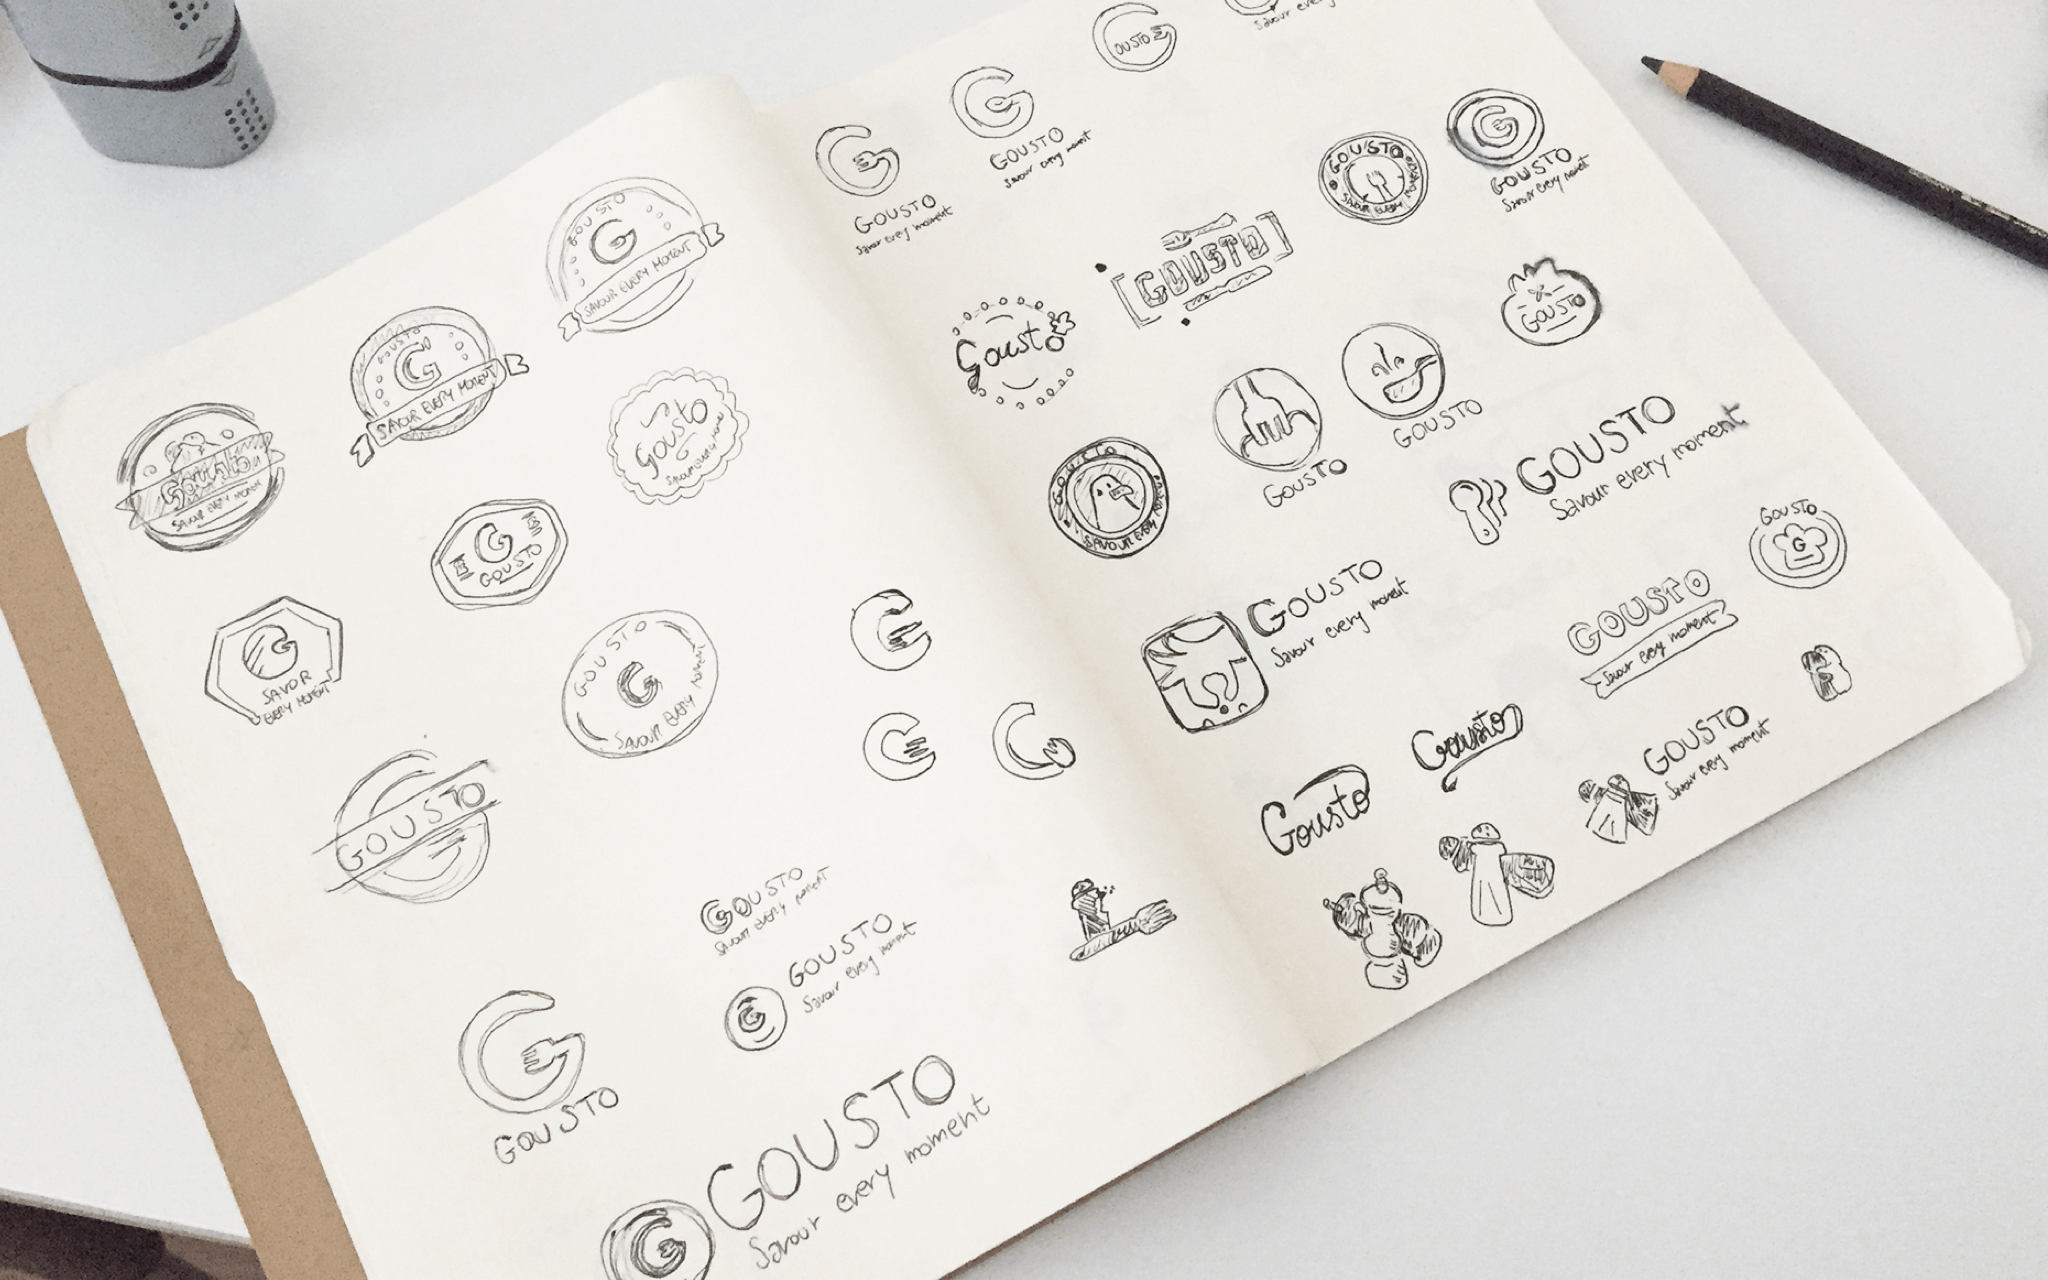 GOUSTO
SAVOUR EVERY MOMENT
GOUSTO
G
SAVOUR EVERY MOMENT
Gousto
SAVOUR EVERY MOMENT
Gousto
G
GOUSTO
SAVOR
EVERY MOMENT
GOUSTO
G
SAVOUR EVERY MOMENT
GOUSTO
GOUSTO
SAVOUR EVERY MOMENT
GOUSTO
Savour every moment
G
GOUSTO
G
GOUSTO
Savour every moment
GOUSTO
Savour every
G
GOUSTO
Savour every moment
G
GOUSTO
Savour every moment
GOUSTO
SAVOUR EVERY MOMENT
G
GOUSTO
Savour every moment
GOUSTO
Gousto
GOUSTO
GOUSTO
GOUSTO
GOUSTO
SAVOUR EVERY MOMENT
GOUSTO
Savour every moment
GOUSTO
G
GOUSTO
Savour every moment
GOUSTO
Savour every moment
Gousto
Gousto
GOUSTO
Savour every moment